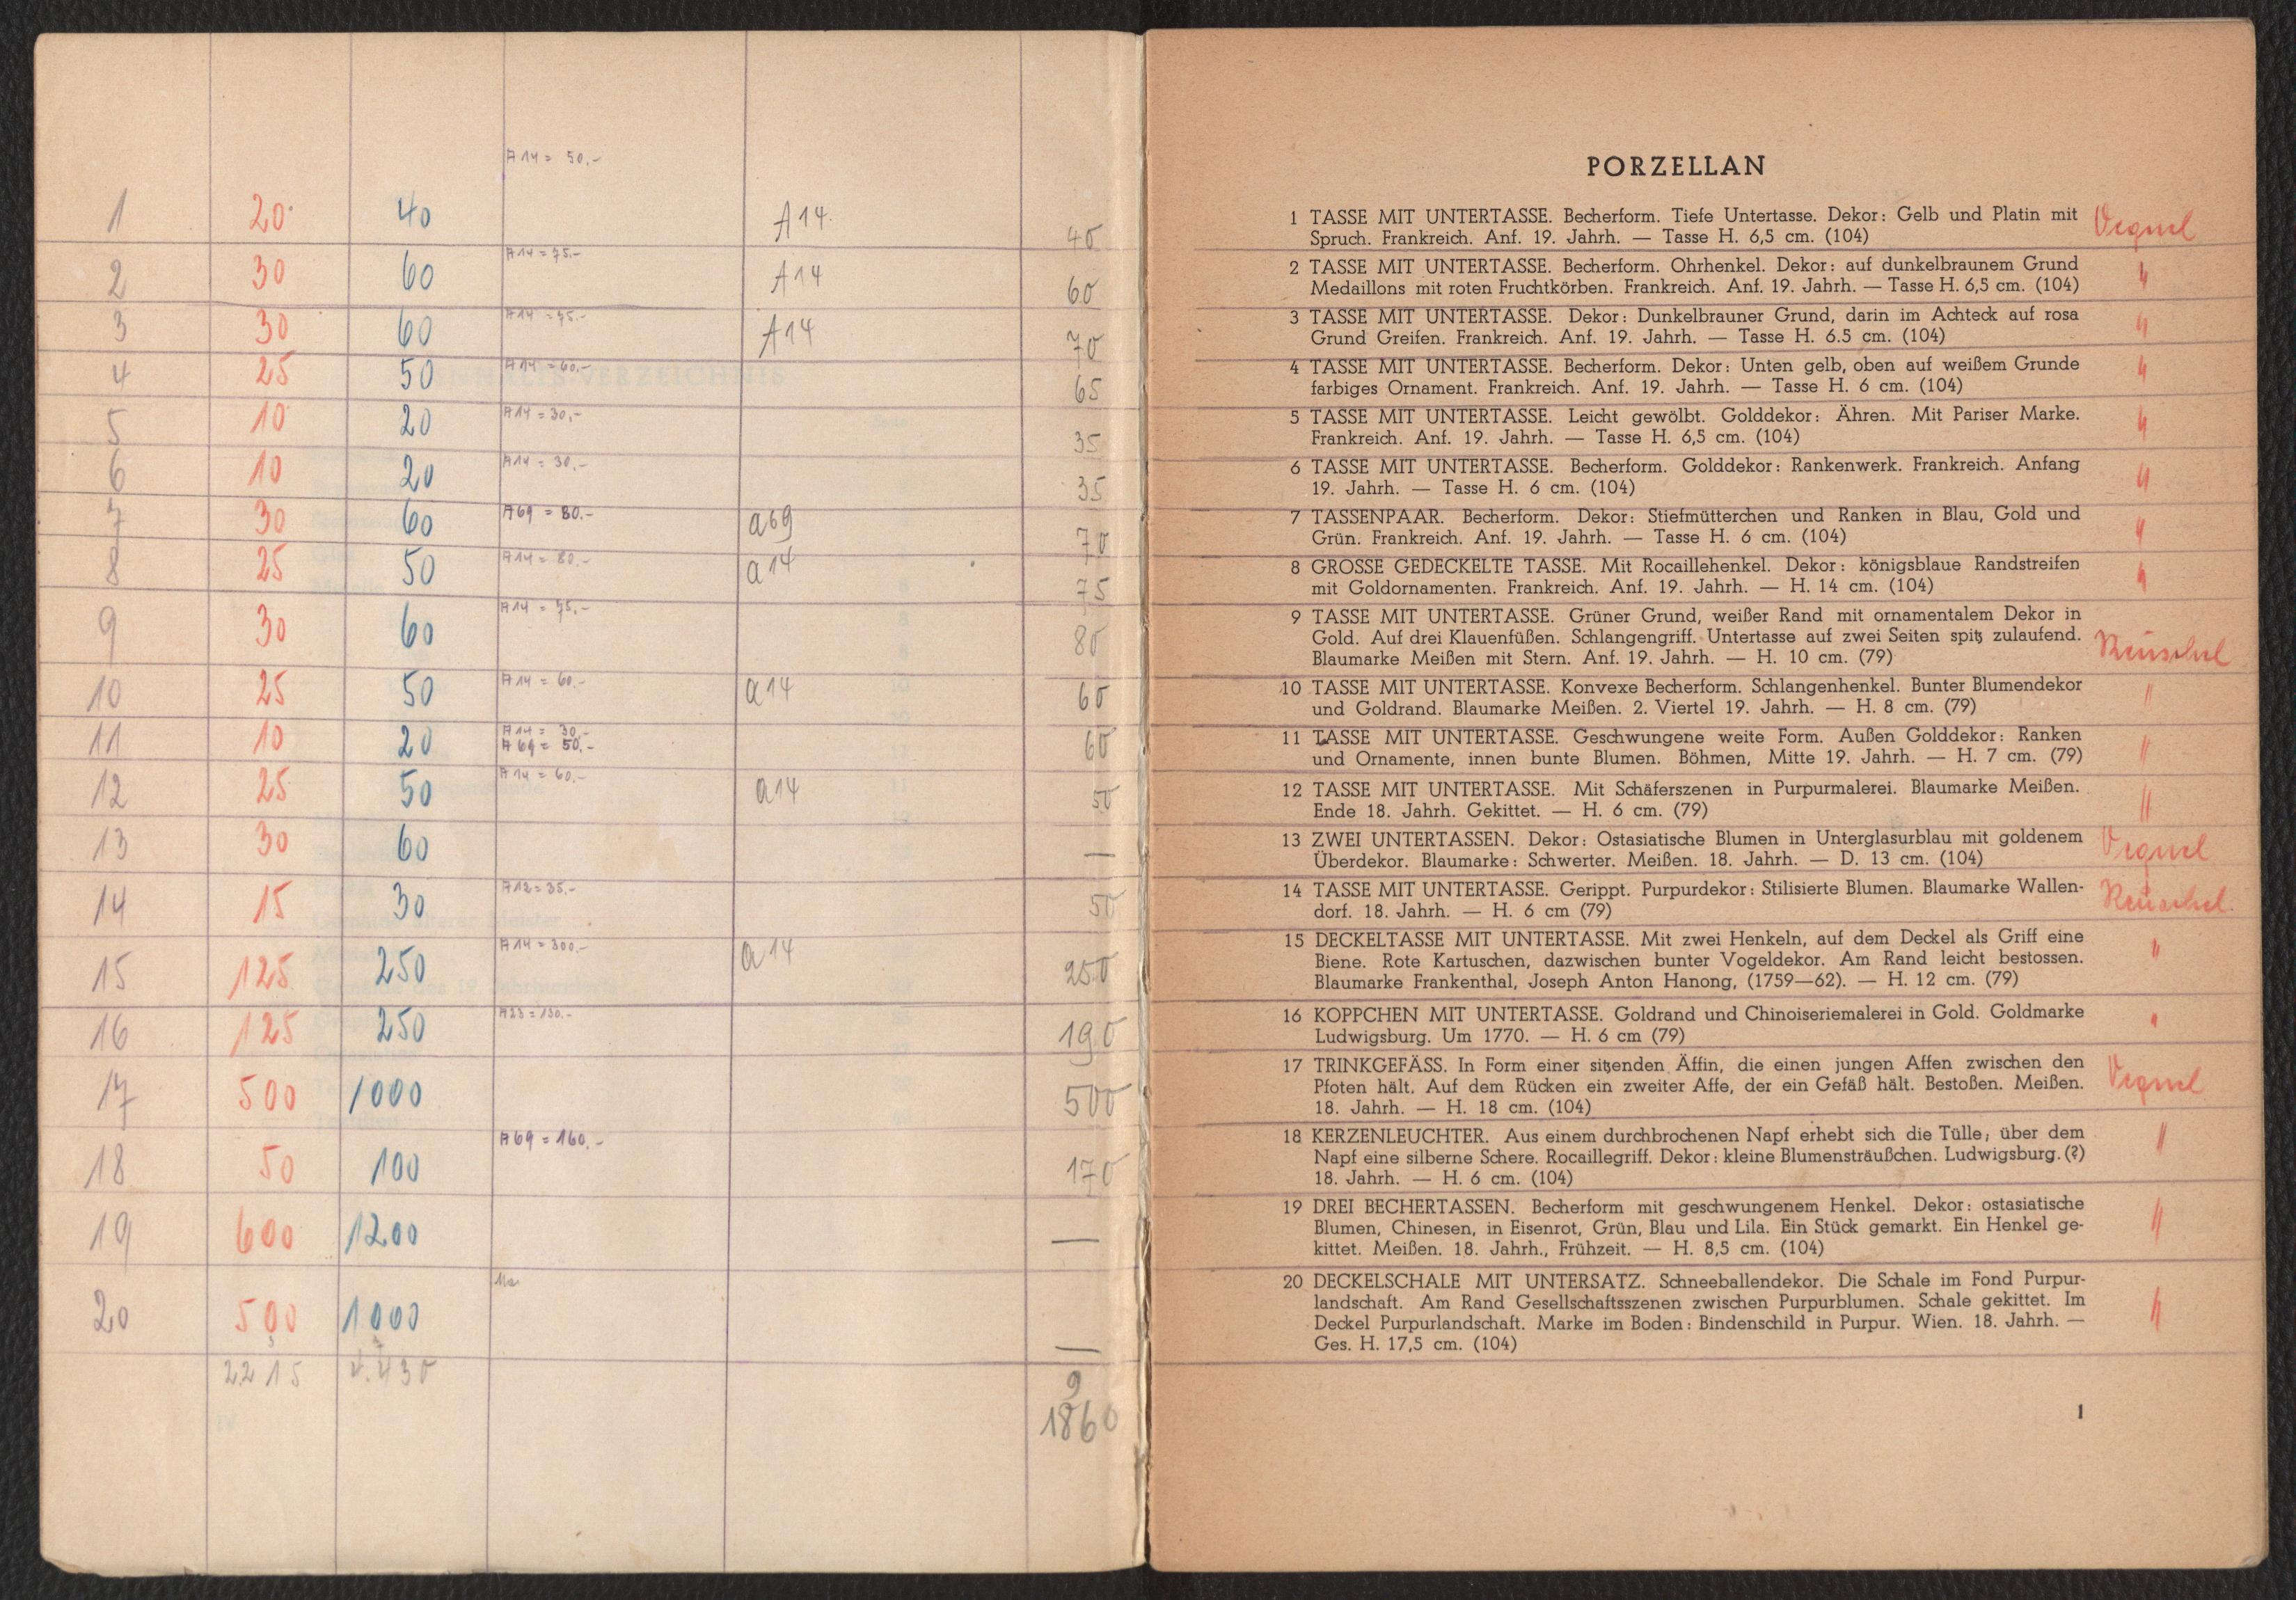 A14 = 50.-
1 20 40 A14 40
A14 = 75.-
2 30 60 A14 60
A14 = 75.-
3 30 60 A14 70
4 25 50 A14 = 60.- 65
5 10 20 A14 = 30,- 35
6 10 20 A14 = 30,- 35
7 30 60 A69 = 80.- a69 70
8 25 50 A14 = 80.- a14 75
A14 = 75,-
9 30 60 80
10 25 50 A14 = 60.- a14 60
A14 = 30,-
11 10 20 A69 = 50,- 60
12 25 50 A14 = 60,- a14 50
13 30 60 —
14 15 30 A12 = 35,- 50
A14 = 300,-
15 125 250 a14 250
16 125 250 A23 = 130.- 190
17 500 1000 500
A69 = 160,-
18 50 100 170
19 600 1200 —
20 500 1000 —
2215 4.430
9
1860
PORZELLAN
1 TASSE MIT UNTERTASSE. Becherform. Tiefe Untertasse. Dekor: Gelb und Platin mit
Spruch. Frankreich. Anf. 19. Jahrh. — Tasse H. 6,5 cm. (104)
2 TASSE MIT UNTERTASSE. Becherform. Ohrhenkel. Dekor: auf dunkelbraunem Grund "
Medaillons mit roten Fruchtkörben. Frankreich. Anf. 19. Jahrh. — Tasse H. 6,5 cm. (104)
3 TASSE MIT UNTERTASSE. Dekor: Dunkelbrauner Grund, darin im Achteck auf rosa "
Grund Greifen. Frankreich. Anf. 19. Jahrh. — Tasse H. 6.5 cm. (104)
4 TASSE MIT UNTERTASSE. Becherform. Dekor: Unten gelb, oben auf weißem Grunde "
farbiges Ornament. Frankreich. Anf. 19. Jahrh. — Tasse H. 6 cm. (104)
5 TASSE MIT UNTERTASSE. Leicht gewölbt. Golddekor: Ähren. Mit Pariser Marke. "
Frankreich. Anf. 19. Jahrh. — Tasse H. 6,5 cm. (104)
6 TASSE MIT UNTERTASSE. Becherform. Golddekor: Rankenwerk. Frankreich. Anfang "
19. Jahrh. — Tasse H. 6 cm. (104)
7 TASSENPAAR. Becherform. Dekor: Stiefmütterchen und Ranken in Blau, Gold und "
Grün. Frankreich. Anf. 19. Jahrh. — Tasse H. 6 cm. (104)
8 GROSSE GEDECKELTE TASSE. Mit Rocaillehenkel. Dekor: königsblaue Randstreifen "
mit Goldornamenten. Frankreich. Anf. 19. Jahrh. — H. 14 cm. (104)
9 TASSE MIT UNTERTASSE. Grüner Grund, weißer Rand mit ornamentalem Dekor in
Gold. Auf drei Klauenfüßen. Schlangengriff. Untertasse auf zwei Seiten spitz zulaufend. Reuschel
Blaumarke Meißen mit Stern. Anf. 19. Jahrh. — H. 10 cm. (79)
10 TASSE MIT UNTERTASSE. Konvexe Becherform. Schlangenhenkel. Bunter Blumendekor "
und Goldrand. Blaumarke Meißen. 2. Viertel 19. Jahrh. — H. 8 cm. (79)
11 TASSE MIT UNTERTASSE. Geschwungene weite Form. Außen Golddekor: Ranken "
und Ornamente, innen bunte Blumen. Böhmen, Mitte 19. Jahrh. — H. 7 cm. (79)
12 TASSE MIT UNTERTASSE. Mit Schäferszenen in Purpurmalerei. Blaumarke Meißen. "
Ende 18. Jahrh. Gekittet. — H. 6 cm. (79)
13 ZWEI UNTERTASSEN. Dekor: Ostasiatische Blumen in Unterglasurblau mit goldenem
Überdekor. Blaumarke: Schwerter. Meißen. 18. Jahrh. — D. 13 cm. (104)
14 TASSE MIT UNTERTASSE. Gerippt. Purpurdekor: Stilisierte Blumen. Blaumarke Wallen- Reuschel
dorf. 18. Jahrh. — H. 6 cm (79)
15 DECKELTASSE MIT UNTERTASSE. Mit zwei Henkeln, auf dem Deckel als Griff eine "
Biene. Rote Kartuschen, dazwischen bunter Vogeldekor. Am Rand leicht bestossen.
Blaumarke Frankenthal, Joseph Anton Hanong, (1759—62). — H. 12 cm. (79)
16 KOPPCHEN MIT UNTERTASSE. Goldrand und Chinoiseriemalerei in Gold. Goldmarke "
Ludwigsburg. Um 1770. — H. 6 cm (79)
17 TRINKGEFÄSS. In Form einer sitzenden Äffin, die einen jungen Affen zwischen den
Pfoten hält. Auf dem Rücken ein zweiter Affe, der ein Gefäß hält. Bestoßen. Meißen.
18. Jahrh. — H. 18 cm. (104)
18 KERZENLEUCHTER. Aus einem durchbrochenen Napf erhebt sich die Tülle; über dem "
Napf eine silberne Schere. Rocaillegriff. Dekor: kleine Blumensträußchen. Ludwigsburg. (?)
18. Jahrh. — H. 6 cm. (104)
19 DREI BECHERTASSEN. Becherform mit geschwungenem Henkel. Dekor: ostasiatische "
Blumen, Chinesen, in Eisenrot, Grün, Blau und Lila. Ein Stück gemarkt. Ein Henkel ge-
kittet. Meißen. 18. Jahrh., Frühzeit. — H. 8,5 cm. (104)
20 DECKELSCHALE MIT UNTERSATZ. Schneeballendekor. Die Schale im Fond Purpur- "
landschaft. Am Rand Gesellschaftsszenen zwischen Purpurblumen. Schale gekittet. Im
Deckel Purpurlandschaft. Marke im Boden: Bindenschild in Purpur. Wien. 18. Jahrh. —
Ges. H. 17,5 cm. (104)
1